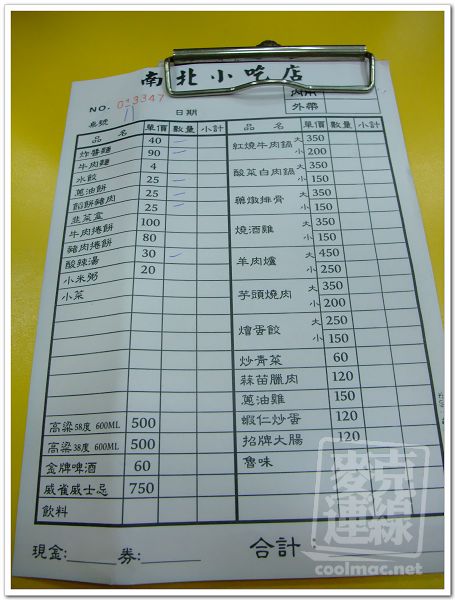 南北小吃店
NO. 033347
內用
桌號 11 日期 外帶
品名 單價 數量 小計
炸醬麵 40 一
牛肉麵 90 一
水餃 4
蔥油餅 25 一
餡餅豬肉 25 一
韭菜盒 25 一
牛肉捲餅 100
豬肉捲餅 80
酸辣湯 30
小米粥 20
小菜
高粱58度 600ML 500
高粱38度 600ML 500
金牌啤酒 60
威雀威士忌 750
飲料
品名 單價 數量 小計
紅燒牛肉鍋 大 350
小 200
酸菜白肉鍋 大 350
小 150
藥燉排骨 大 350
小 150
燒酒雞 大 350
小 150
羊肉爐 大 450
小 250
芋頭燒肉 大 350
小 200
燴蛋餃 大 250
小 150
炒青菜 60
蒜苗臘肉 120
蔥油雞 150
蝦仁炒蛋 120
招牌大腸 120
魯味
現金: 券: 合計:
麥克連線
coolmac.net